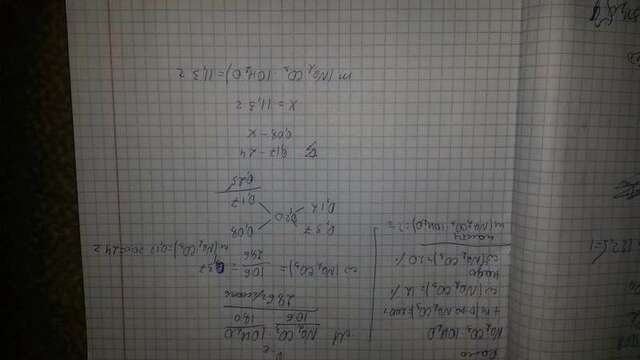 Дано
Na₂CO₃ · 10H₂O
ω (Na₂CO₃) = 12 %
надо
ω (Na₂CO₃) = 20 %
найти
m(Na₂CO₃ · 10H₂O) = ?
M Na₂CO₃ · 10H₂O
106 180
286 г/моль
ω (Na₂CO₃) = 106 / 286 = 0,37
m(Na₂CO₃) = 0,12 · 200 = 24 г
0,37 0,08
0,20
0,12 0,17
0,25
0,17 – 24
0,08 – x
x = 11,3 г
m (Na₂CO₃ · 10H₂O) = 11,3 г